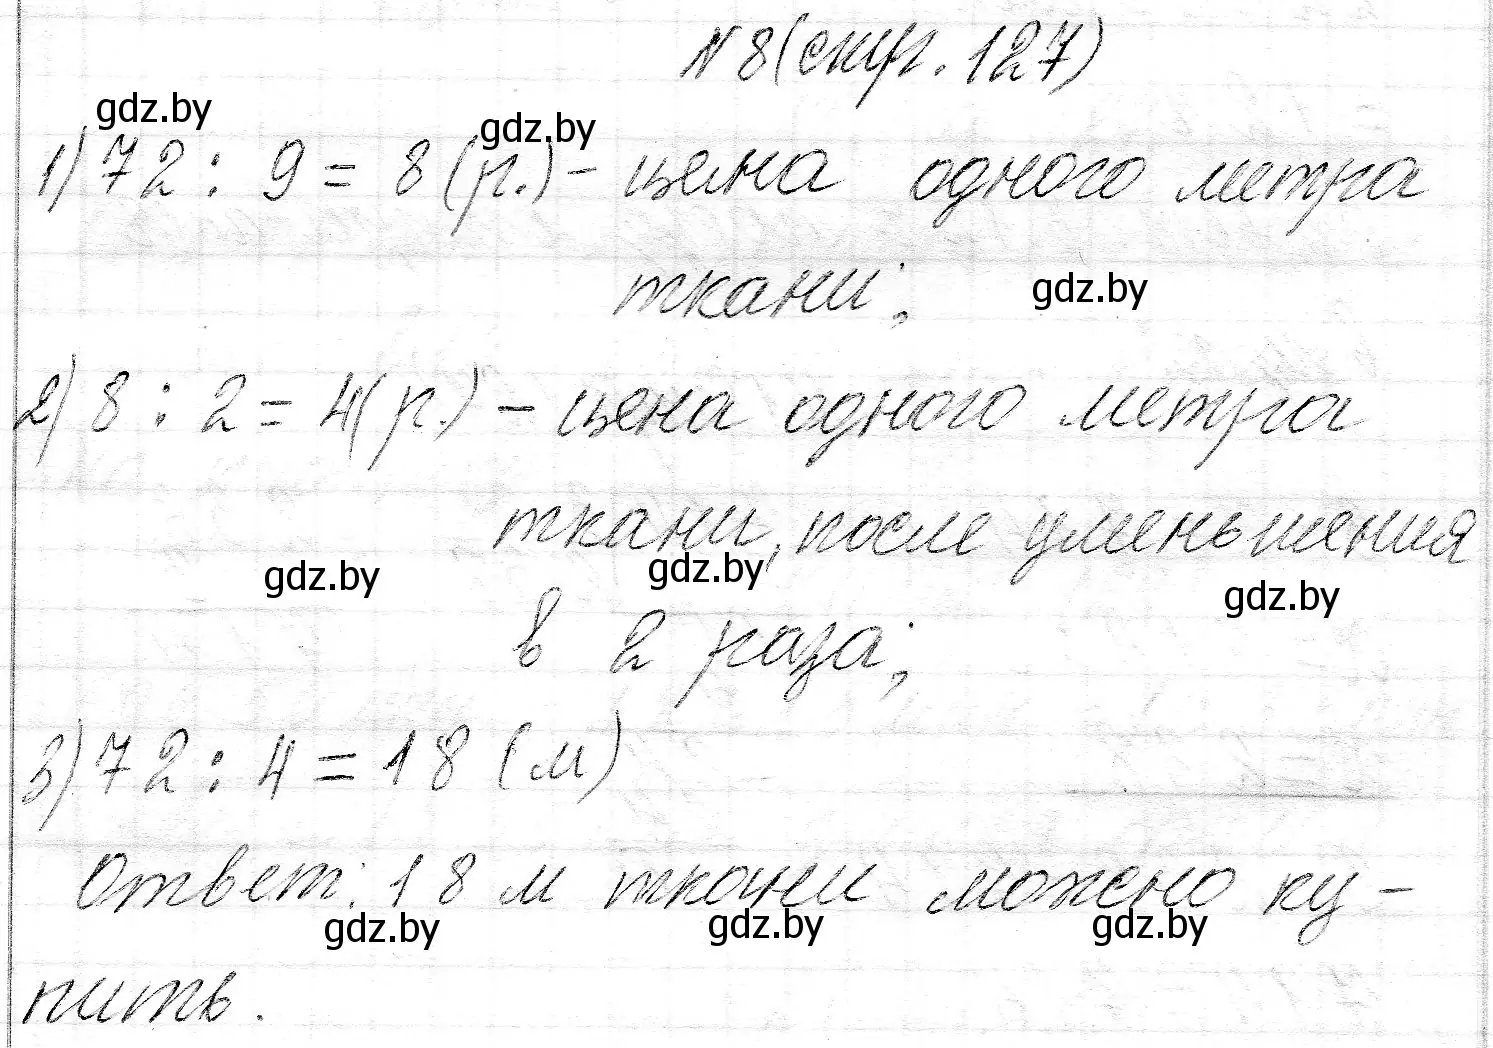 N 8 (стр. 127)
gdz.by
gdz.by
1) 72 : 9 = 8 (р.) - цена одного метра
ткани;
gdz.by
2) 8 : 2 = 4 (р.) - цена одного метра
ткани, после уменьшения
gdz.by
gdz.by
gdz.by
в 2 раза;
3) 72 : 4 = 18 (м)
Ответ: 18 м ткани можно ку-
gdz.by
gdz.by
gdz.by
пить.